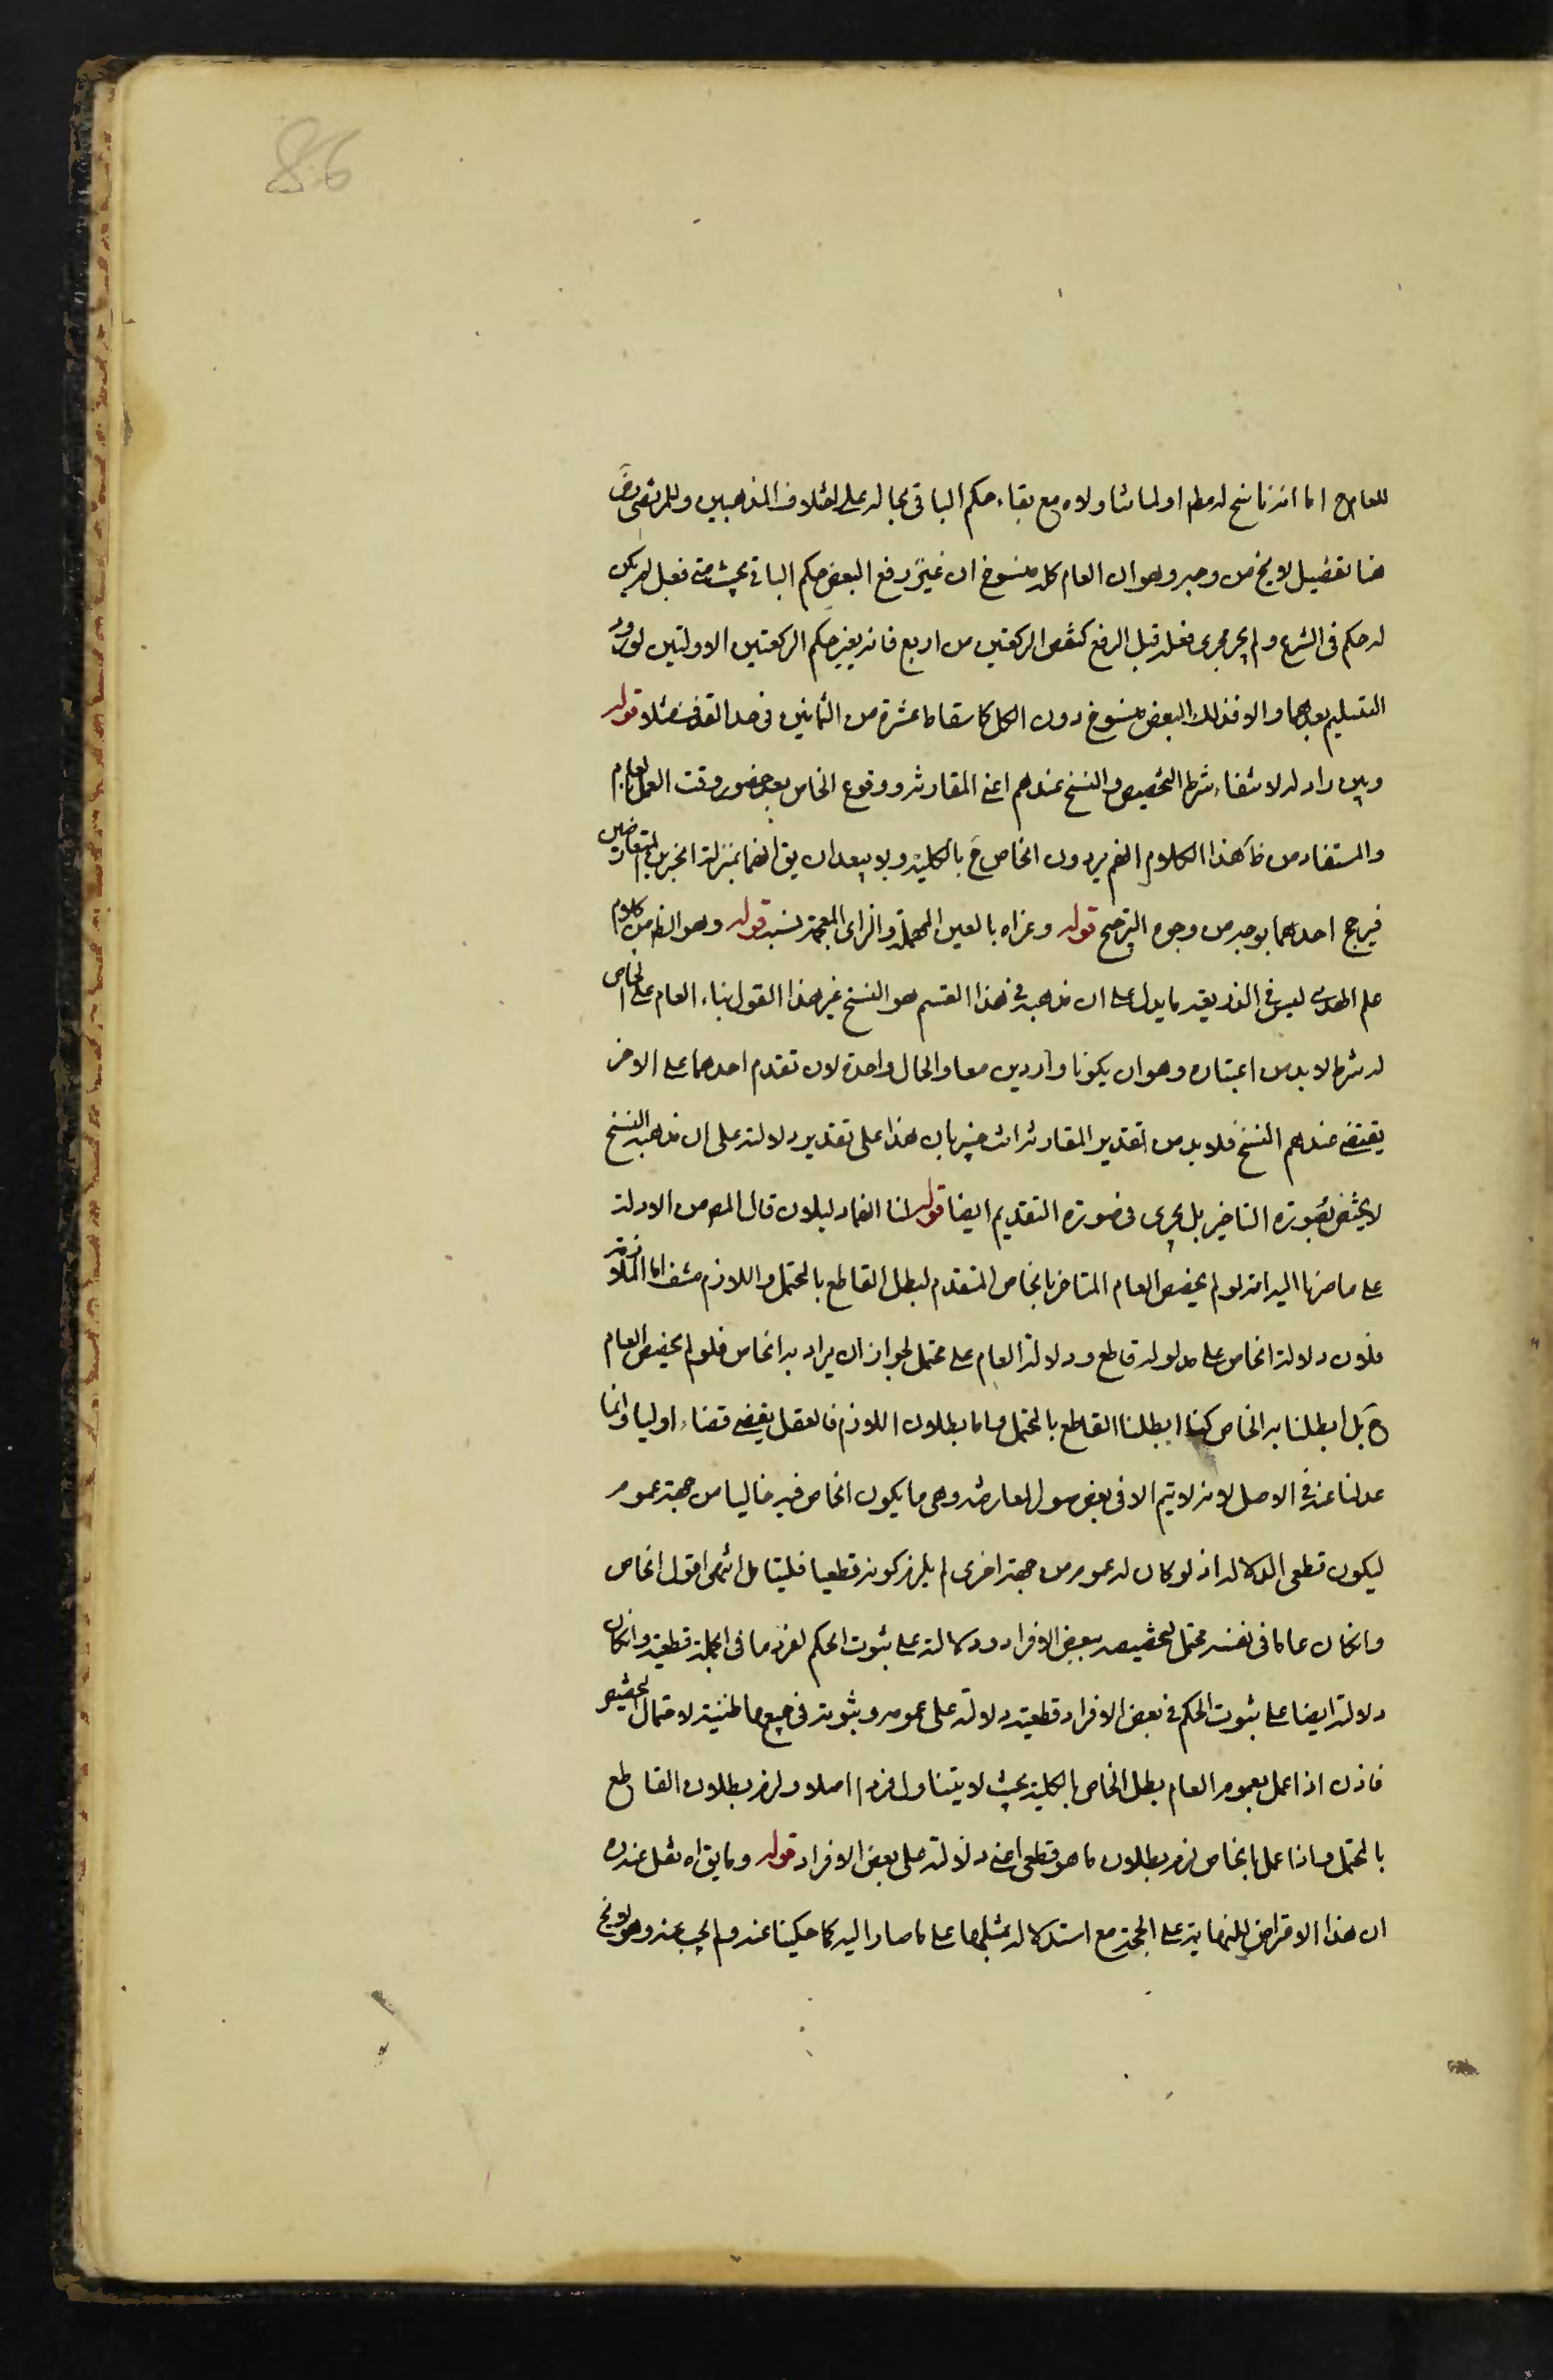 86
للعام ح اما انه ناسخ له مطلقا او لما تناوله مع بقاء حكم الباقى بحاله على اختلاف المذهبين وللمرتضى رض
هنا تفصيل لا يخ من وجه وهو ان العام كله منسوخ ان غيّر رفع البعض حكم الباقى بحيث متى فعل لم يكن
له حكم فى الشرع ولم يجر مجرى فعله قبل الرفع كنقص الركعتين من اربع فانه يغير حكم الركعتين الاولتين لورود
التسليم بعدهما والا فذلك البعض منسوخ دون الكل كاسقاط عشرة من الثمانين فى حد القذف مثلا قوله
وبين راد له لانتفاء شرط التخصيص والنسخ عندهم اعنى المقارنة ووقوع الخاص بعد حضور وقت العمل بالعام
والمستفاد من ظاهر هذا الكلام انهم يردون الخاص ح بالكلية ولا يبعد ان يق انهما بمنزلة الخبرين المتعارضين
فيرجح احدهما بوجه من وجوه الترجيح قوله وعزاه بالعين المهملة والزاى المعجمة نسبه قوله وهو الظ من كلام
علم الهدى ليس فى الذريعة ما يدل على ان مذهبه فى هذا القسم هو النسخ غير هذا القول بناء العام على الخاص
له شرط لا بد من اعتباره وهو ان يكونا واردين معا والحال واحدة لان تقدم احدهما على الاخر
يقتضى عندهم النسخ فلا بد من تقدير المقارنة انت خبير بان هذا على تقدير دلالته على ان مذهبه النسخ
لا يختص بصورة التاخير بل يجرى فى صورة التقديم ايضا قوله لنا انهما دليلان قال المص من الادلة
على ما صرنا اليه انه لو لم يخصص العام المتاخر بالخاص المتقدم لبطل القاطع بالمحتمل واللازم منتف اما الملازمة
فلان دلالة الخاص على مدلوله قاطع ودلالة العام على محتمل لجواز ان يراد به الخاص فلو لم يخصص العام
ح بل ابطلنا به الخاص كنا ابطلنا القاطع بالمحتمل واما بطلان اللازم فالعقل يقضى قضاء اوليا وانما
عدلنا عنه فى الاصل لانه لا يتم الا فى بعض صور المعارضة وهى ما يكون الخاص فيه خاليا من جهة عموم
ليكون قطعى الدلالة اذ لو كان له عموم من جهة اخرى لم يلزم كونه قطعيا فليتامل انتهى اقول الخاص
وان كان عاما فى نفسه محتمل لتخصيصه ببعض الافراد ودلالته على ثبوت الحكم لفرد ما فى الجملة قطعية وان كان
دلالته ايضا على ثبوت الحكم فى بعض الافراد قطعية دلالته على عمومه وثبوته فى جميعها ظنية لاحتمال التخصيص
فاذن اذا عمل بعموم العام بطل الخاص بالكلية بحيث لا يتناول فردا اصلا ولزم بطلان القاطع
بالمحتمل واذا عمل بالخاص لزم بطلان ما هو قطعى اعنى دلالته على بعض الافراد قوله وما يق اه نقل عنه ره
ان هذا الاعتراض للنهاية على الحجة مع استدلاله بمثلها على ما صار اليه كما حكيناه عنه ولم يجب عنه وهو لا يخ